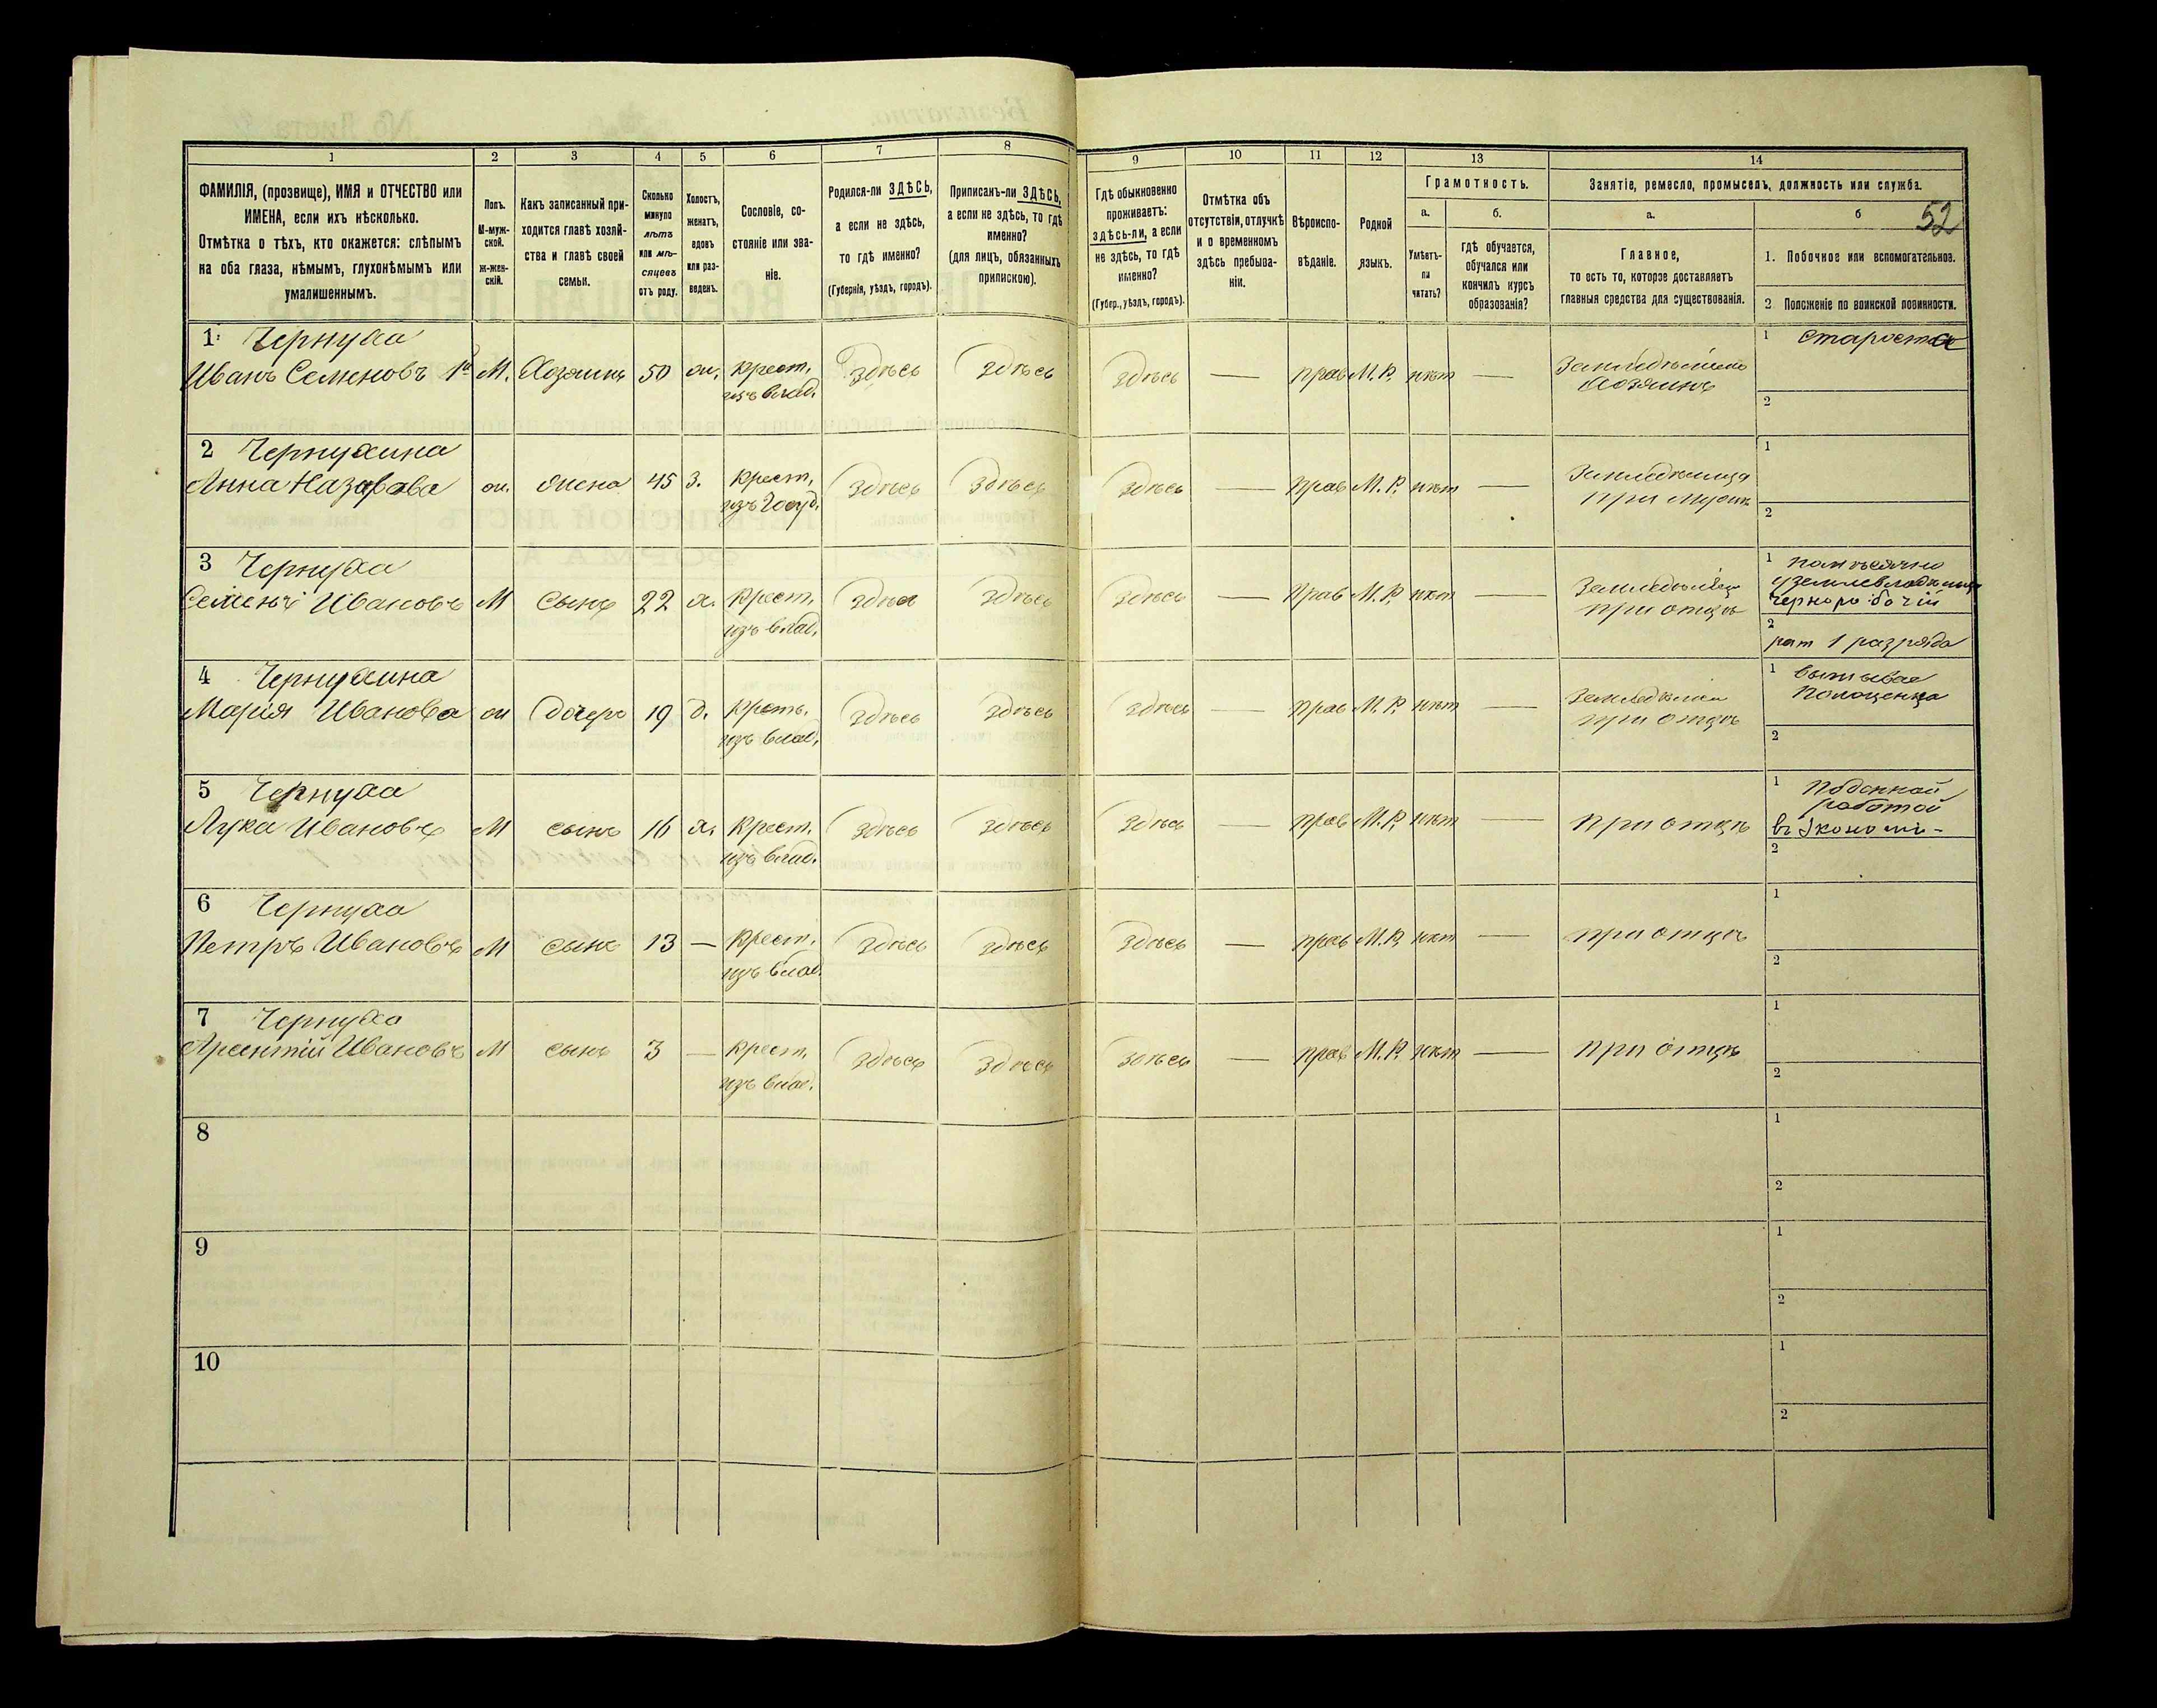 52
1 2 3 4 5 6 7 8 9 10 11 12 13 14
ФАМИЛІЯ, (прозвище), ИМЯ и ОТЧЕСТВО или
ИМЕНА, если ихъ нѣсколько.
Отмѣтка о тѣхъ, кто окажется: слѣпымъ
на оба глаза, нѣмымъ, глухонѣмымъ или
умалишеннымъ.
Полъ.
М-муж-
ской.
Ж-жен-
скій.
Какъ записанный при-
ходится главѣ хозяй-
ства и главѣ своей
семьи.
Сколько
минуло
лѣтъ
или мѣ-
сяцевъ
отъ роду.
Холостъ,
женатъ,
вдовъ
или раз-
веденъ.
Сословіе, со-
стояніе или зва-
ніе.
Родился-ли ЗДѢСЬ,
а если не здѣсь,
то гдѣ именно?
(Губернія, уѣздъ, городъ).
Приписанъ-ли ЗДѢСЬ,
а если не здѣсь, то гдѣ
именно?
(для лицъ, обязанныхъ
припискою).
Гдѣ обыкновенно
проживаетъ:
здѣсь-ли, а если
не здѣсь, то гдѣ
именно?
(Губер., уѣздъ, городъ).
Отмѣтка объ
отсутствіи, отлучкѣ
и о временномъ
здѣсь пребыва-
ніи.
Вѣроиспо-
вѣданіе.
Родной
языкъ.
Грамотность.
а.
Умѣетъ-
ли
читать?
б.
гдѣ обучается,
обучался или
кончилъ курсъ
образованія?
Занятіе, ремесло, промыселъ, должность или служба.
а.
Главное,
то есть то, которое доставляетъ
главныя средства для существованія.
б
1. Побочное или вспомогательное.
2 Положеніе по воинской повинности.
1 Чернуха 1 Староста
Иванъ Семеновъ 1й М. Хозяинъ 50 ж. Крест. здѣсь здѣсь здѣсь — прав М.Р. нѣт — Земледѣлецъ
изъ влад. Хозяинъ
2
2 Чернухина 1
Анна Назарова ж. жена 45 з. Крест. здѣсь здѣсь здѣсь — прав М.Р. нѣт — Земледѣлица
изъ госуд. при мужѣ
2
3 Чернуха 1 помѣсячно
у землевладѣльца
Семенъ Ивановъ М сынъ 22 х. Крест. здѣсь здѣсь здѣсь — прав М.Р. нѣт — Земледѣлецъ чернорабочій
изъ влад. при отцѣ
2 рат 1 разряда
4 Чернухина 1 вышивае
Марія Иванова ж дочерь 19 д. Крест. здѣсь здѣсь здѣсь — прав М.Р. нѣт — полоценца
изъ влад. при отцѣ
2
5 Чернуха 1 Поденной
работой
Лука Ивановъ М сынъ 16 х. Крест. здѣсь здѣсь здѣсь — прав М.Р. нѣт — при отцѣ въ Экономі-
изъ влад. 2
6 Чернуха 1
Петръ Ивановъ М сынъ 13 — Крест. здѣсь здѣсь здѣсь — прав М.Р. нѣт — при отцѣ
изъ влад. 2
7 Чернуха 1
Арсентій Ивановъ М сынъ 3 — Крест. здѣсь здѣсь здѣсь — прав М.Р. нѣт — при отцѣ
изъ влад. 2
8 1
2
9 1
2
10 1
2